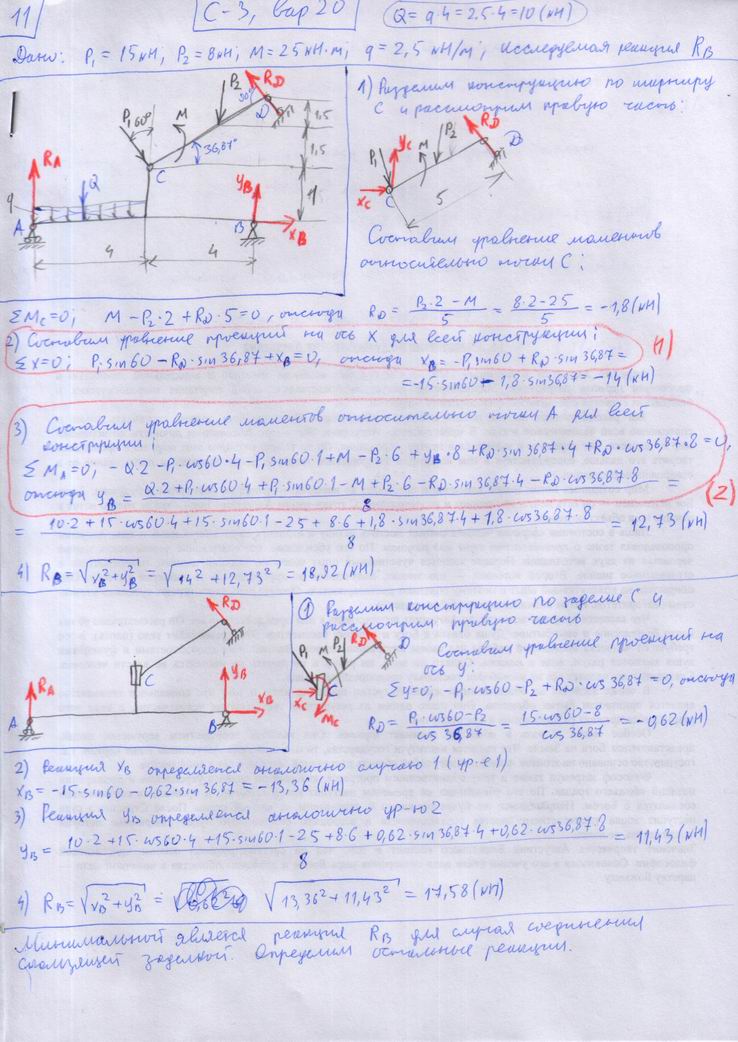 11
С-3, вар 20
Q = q·4 = 2,5·4 = 10 (кН)
Дано: P₁ = 15 кН, P₂ = 8 кН; M = 25 кН·м; q = 2,5 кН/м; Исследуемая реакция R_B
P₂ R_D
P₁ 60° M 90° D 1,5
36,87° 1,5
R_A C
q Q y_B 4
A B x_B
4 4
1) Разделим конструкцию по шарниру
C и рассмотрим правую часть:
R_D
y_C P₂ D
P₁ M
x_C C 5
Составим уравнение моментов
относительно точки C:
ΣM_C=0; M - P₂·2 + R_D·5 = 0, отсюда R_D = (P₂·2 - M)/5 = (8·2-25)/5 = -1,8 (кН)
2) Составим уравнение проекций на ось X для всей конструкции:
ΣX=0; P₁·sin60 - R_D·sin36,87 + x_B = 0, отсюда x_B = -P₁sin60 + R_D·sin36,87 =
(1)
= -15·sin60 - 1,8·sin36,87 = -14 (кН)
3) Составим уравнение моментов относительно точки A для всей
конструкции:
ΣM_A=0; -Q·2 - P₁·cos60·4 - P₁sin60·1 + M - P₂·6 + y_B·8 + R_D·sin36,87·4 + R_D·cos36,87·8 = 0,
отсюда y_B = (Q·2 + P₁·cos60·4 + P₁·sin60·1 - M + P₂·6 - R_D·sin36,87·4 - R_D·cos36,87·8)/8 =
(2)
= (10·2 + 15·cos60·4 + 15·sin60·1 - 25 + 8·6 + 1,8·sin36,87·4 + 1,8·cos36,87·8)/8 = 12,73 (кН)
4) R_B = √(x_B² + y_B²) = √(14² + 12,73²) = 18,92 (кН)
R_D
C
R_A y_B
A B x_B
1 Разделим конструкцию по заделке C и
рассмотрим правую часть
P₁ M P₂ R_D D
x_C C M_C
Составим уравнение проекций на
ось y:
Σy=0, -P₁·cos60 - P₂ + R_D·cos36,87 = 0, отсюда
R_D = (P₁·cos60-P₂)/cos36,87 = (15·cos60-8)/cos36,87 = -0,62 (кН)
2) Реакция x_B определяется аналогично случаю 1 (ур-е 1)
x_B = -15·sin60 - 0,62·sin36,87 = -13,36 (кН)
3) Реакция y_B определяется аналогично ур-ю 2
y_B = (10·2 + 15·cos60·4 + 15·sin60·1 - 25 + 8·6 + 0,62·sin36,87·4 + 0,62·cos36,87·8)/8 = 11,43 (кН)
4) R_B = √(x_B² + y_B²) = √(13,36² + 11,43²) = 17,58 (кН)
Минимальной является реакция R_B для случая соединения
скользящей заделкой. Определим остальные реакции.